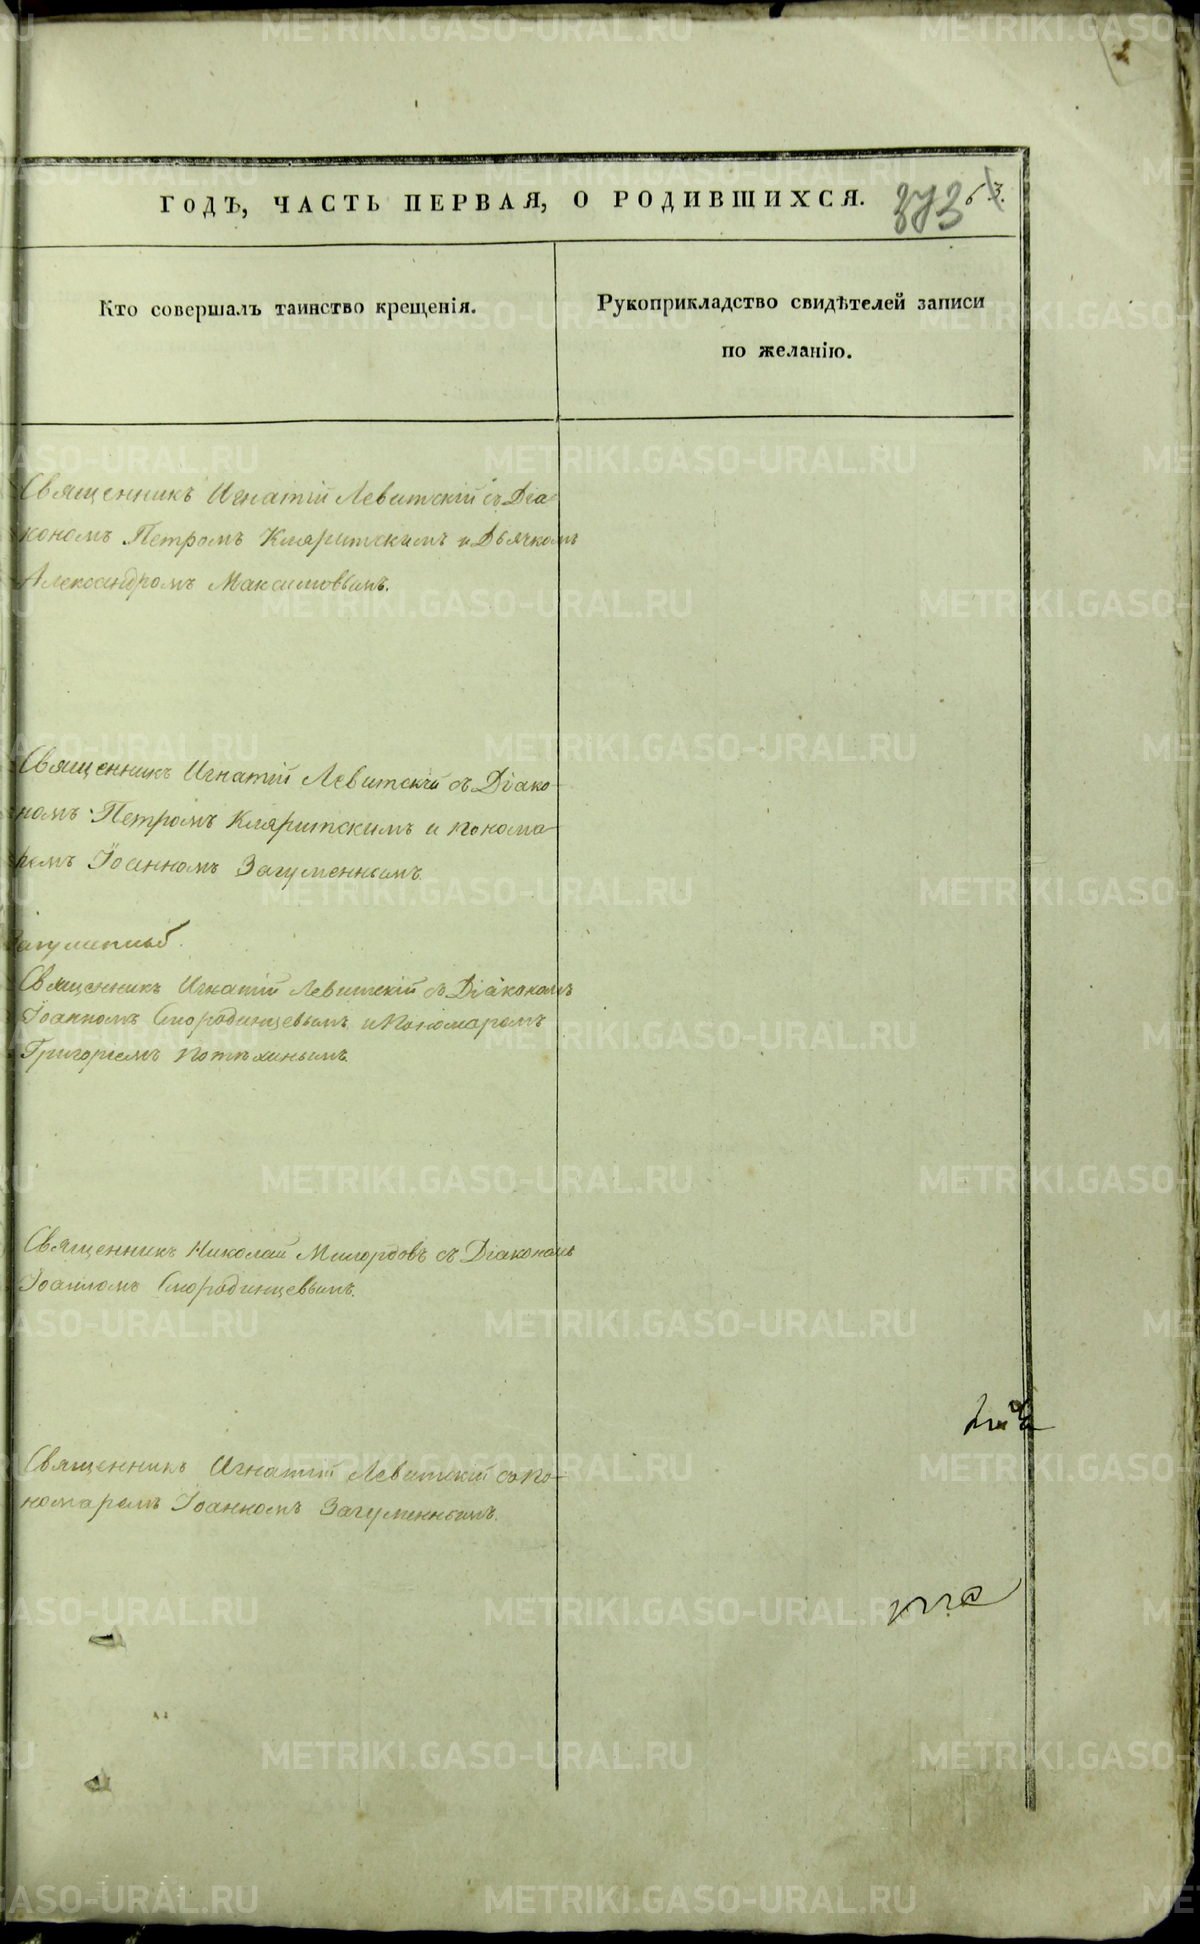 ГОДЪ, ЧАСТЬ ПЕРВАЯ, О РОДИВШИХСЯ.
373
63.
Кто совершалъ таинство крещенія.
Рукоприкладство свидѣтелей записи
по желанію.
Священникъ Игнатій Левитскій съ Діа-
кономъ Петромъ Кляритскимъ и Дьячкомъ
Александромъ Максимовымъ.
Священникъ Игнатій Левитскій съ Діако-
номъ Петромъ Кляритскимъ и понома-
ремъ Іоанномъ Загуменнымъ
Священникъ Игнатій Левитскій съ Діакономъ
Іоанномъ Смородинцевымъ и Пономаремъ
Григоріемъ Потѣхинымъ
Священникъ Николай Милордовъ съ Діакономъ
Іоанномъ Смородинцевымъ.
Священникъ Игнатій Левитскій съ По-
номаремъ Іоанномъ Загуменнымъ.
METRIKI.GASO-URAL.RU